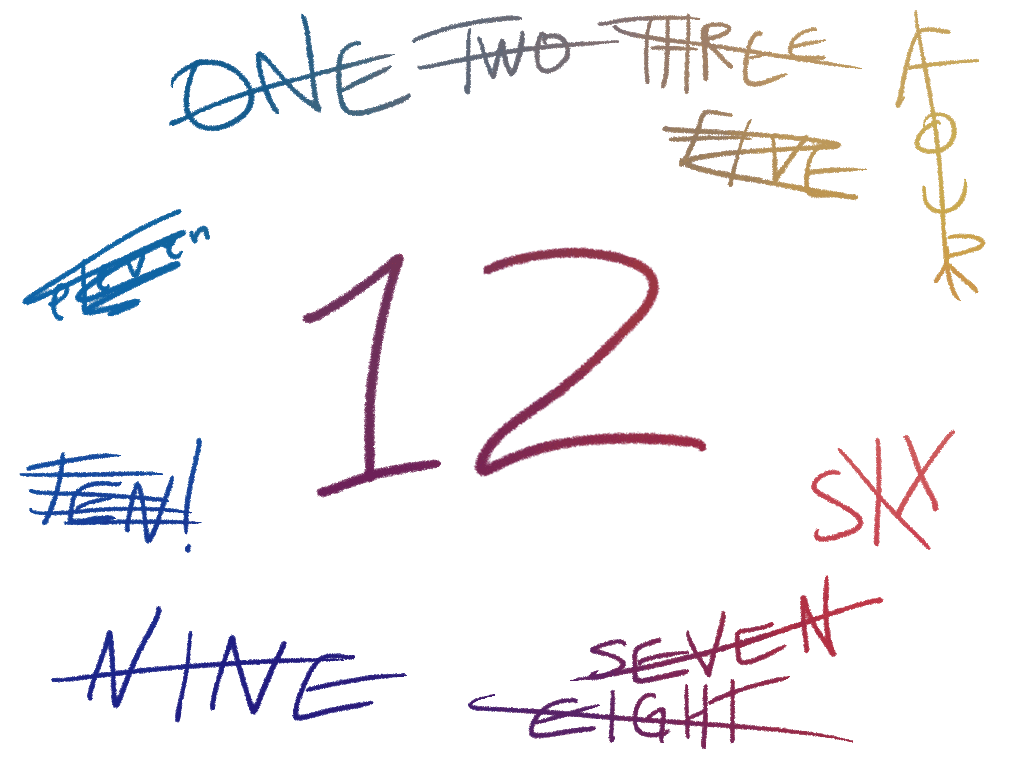 ONE TWO THREE
FOUR
FIVE
eleven
12
TEN!
SIX
SEVEN
NINE
EIGHT